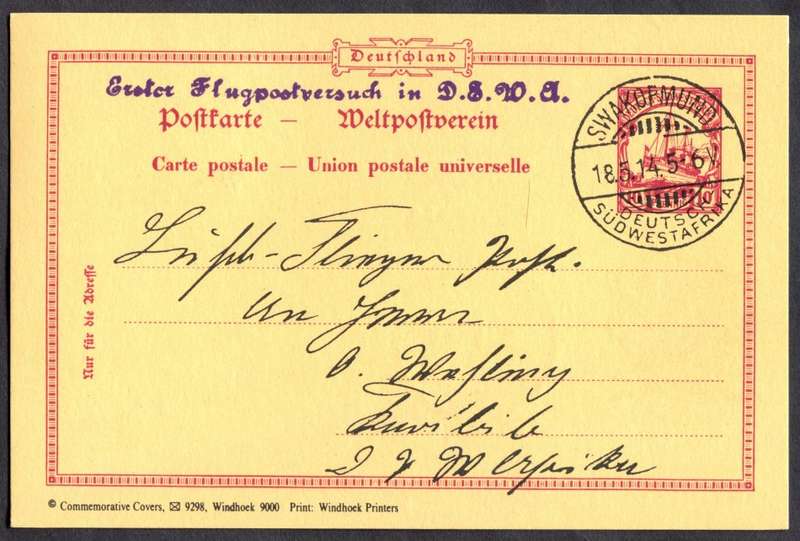 Deutschland
Erster Flugpostversuch in D.S.W.A.
Postkarte — Weltpostverein
Carte postale — Union postale universelle
SWAKOPMUND
18.5.14. 5-6 V
DEUTSCH-
SÜDWESTAFRIKA
10
Nur für die Adresse
Flieger Post.
An Herrn
O.
© Commemorative Covers, ✉ 9298, Windhoek 9000 Print: Windhoek Printers